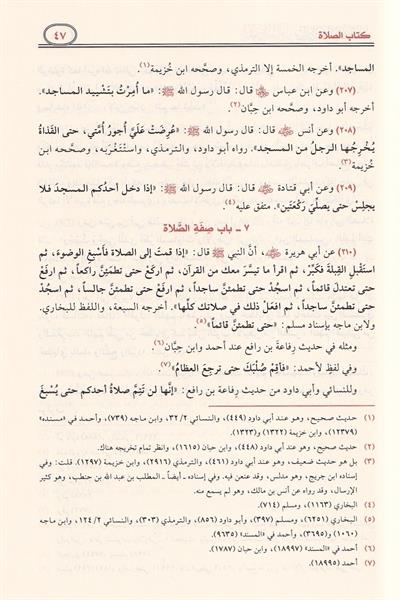 كتاب الصلاة
٤٧
المساجد». أخرجه الخمسة إلا الترمذي، وصححه ابن خزيمة(١).
(٢٠٧) وعن ابن عباس ﷺ قال: قال رسول الله ﷺ: «ما أُمِرْتُ بتَشْييد المساجد».
أخرجه أبو داود، وصححه ابن حِبَّان(٢).
(٢٠٨) وعن أنس ﷺ قال: قال رسول الله ﷺ: «عُرِضَتْ عَلَيَّ أُجورُ أُمَّتي، حتى القَذَاةُ
يُخْرِجُها الرجلُ من المسجد». رواه أبو داود، والترمذي، واستَغْرَبَه، وصححه ابن
خُزيمة(٣).
(٢٠٩) وعن أبي قتادة ﷺ قال: قال رسول الله ﷺ: «إذا دخل أحدُكم المسجدَ فلا
يجلِسْ حتى يصلِّيَ رَكْعَتَين». متفق عليه(٤).
٧ - باب صِفَةِ الصَّلاة
(٢١٠) عن أبي هريرة ﷺ، أنَّ النبي ﷺ قال: «إذا قمتَ إلى الصلاة فأَسْبِغِ الوضوءَ، ثم
استَقْبِلِ القِبلةَ فكَبِّرْ، ثم اقرأ ما تيسَّرَ معك من القرآن، ثم اركَعْ حتى تطمئنَّ راكعاً، ثم ارفَعْ
حتى تعتدلَ قائماً، ثم اسجُدْ حتى تطمئنَّ ساجداً، ثم ارفَعْ حتى تطمئنَّ جالساً، ثم اسجُدْ
حتى تطمئنَّ ساجداً، ثم افعَلْ ذلك في صلاتك كلِّها». أخرجه السبعة، واللفظ للبخاري.
ولابن ماجه بإسناد مسلم: «حتى تطمئنَّ قائماً»(٥).
ومثله في حديث رِفاعةَ بن رافع عند أحمد وابن حِبَّان(٦).
وفي لفظٍ لأحمد: «فأَقِمْ صُلْبَكَ حتى ترجعَ العظامُ»(٧).
وللنسائي وأبي داود من حديث رِفاعة بن رافع: «إنَّها لن تَتِمَّ صلاةُ أحدكم حتى يُسْبِغَ
(١) حديث صحيح، وهو عند أبي داود (٤٤٩)، والنسائي ٣٢/٢، وابن ماجه (٧٣٩)، وأحمد في «مسنده»
(١٢٣٧٩)، وابن خزيمة (١٣٢٢) و(١٣٢٣).
(٢) حديث صحيح، وهو عند أبي داود (٤٤٨)، وابن حبان (١٦١٥)، وانظر تمام تخريجه هناك.
(٣) بل هو حديث ضعيف، وهو عند أبي داود (٤٦١)، والترمذي (٢٩١٦)، وابن خزيمة (١٢٩٧). قلت: وفي
إسناده ابن جريج، وهو مدلس، وقد عنعن فيه. وفي إسناده - أيضاً - المطلب بن عبد الله بن حنطب، وهو كثير
الإرسال، وقد رواه عن أنس بن مالك، وهو لم يسمع منه.
(٤) البخاري (١١٦٣)، ومسلم (٧١٤).
(٥) البخاري (٦٢٥١)، ومسلم (٣٩٧)، وأبو داود (٨٥٦)، والترمذي (٣٠٣)، والنسائي ١٢٤/٢، وابن ماجه
(١٠٦٠) و(٣٦٩٥)، وأحمد في «المسند» (٩٦٣٥).
(٦) أحمد في «المسند» (١٨٩٩٧)، وابن حبان (١٧٨٧).
(٧) أحمد (١٨٩٩٥).